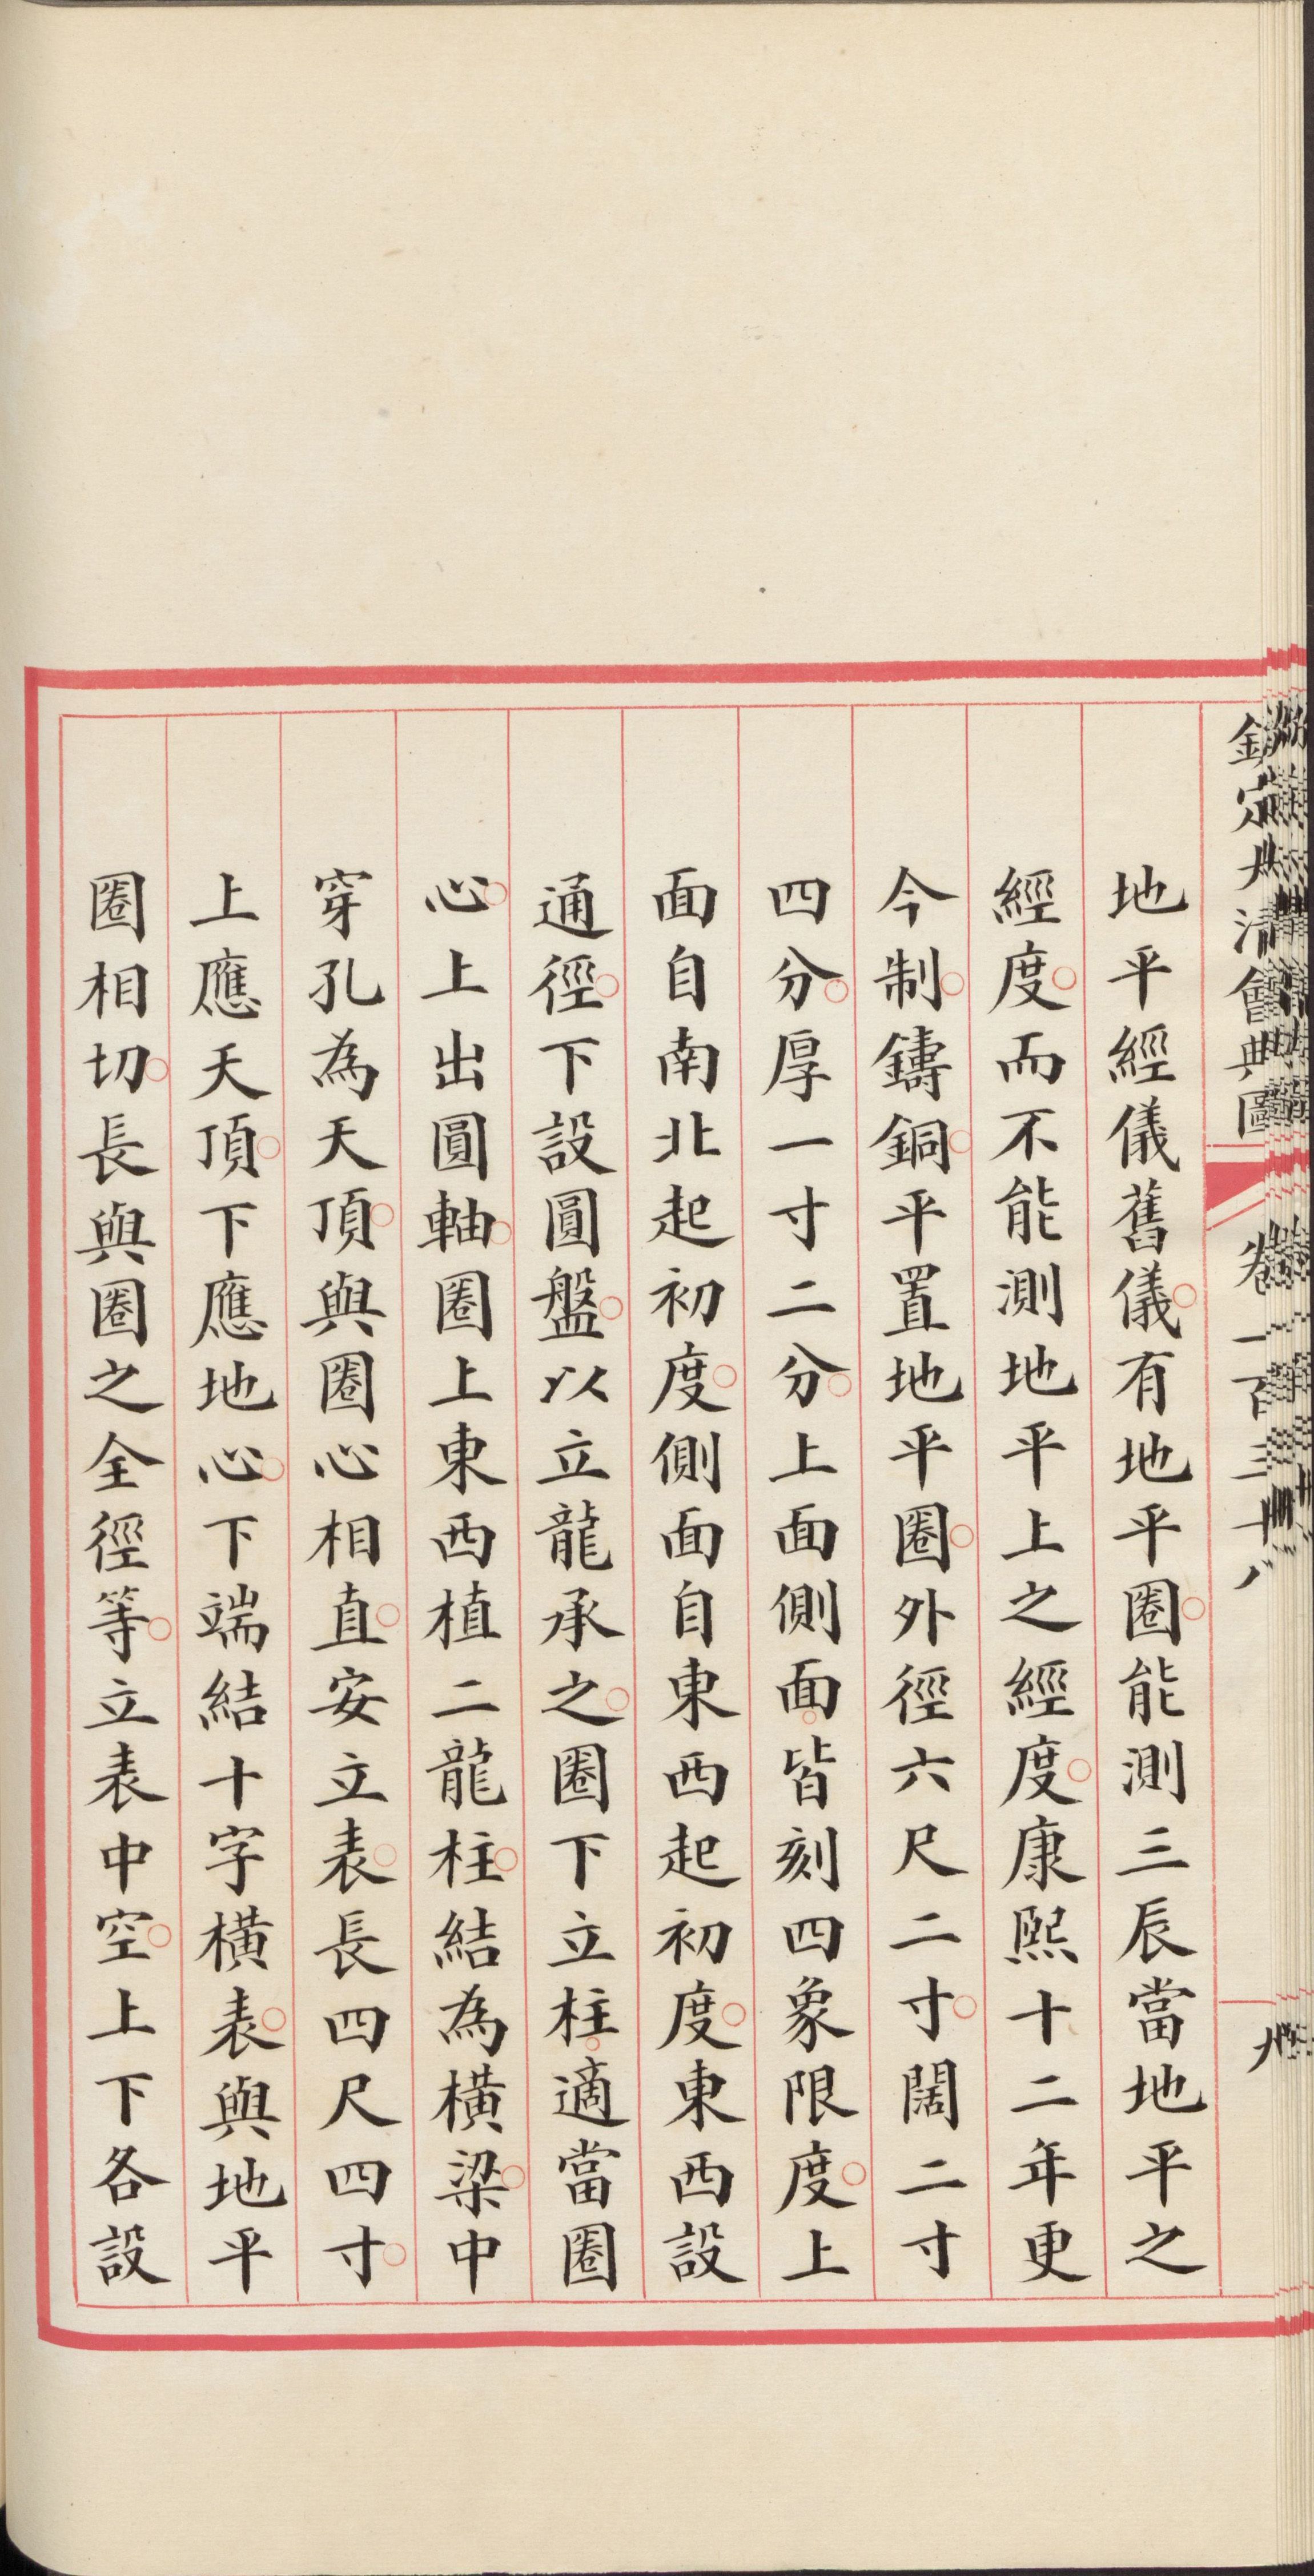 欽定大清會典圖 卷一百三十八 九
地平經儀舊儀有地平圈能測三辰當地平之
經度而不能測地平上之經度康熙十二年更
今制鑄銅平置地平圈外徑六尺二寸闊二寸
四分厚一寸二分上面側面皆刻四象限度上
面自南北起初度側面自東西起初度東西設
通徑下設圓盤以立龍承之圈下立柱適當圈
心上出圓軸圈上東西植二龍柱結為橫梁中
穿孔為天頂與圈心相直安立表長四尺四寸
上應天頂下應地心下端結十字橫表與地平
圈相切長與圈之全徑等立表中空上下各設